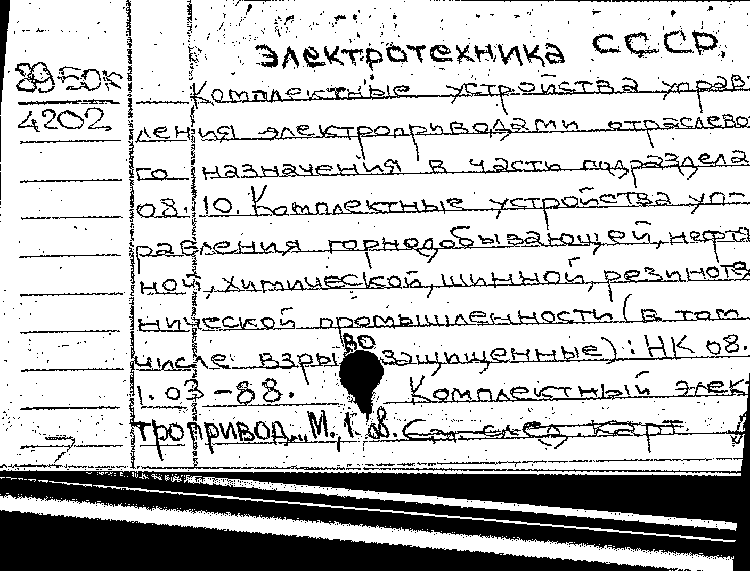 ЭЛЕКТРОТЕХНИКА СССР.
8950к
Комплектные устройства управ-
4202
ления электроприводами отраслево-
го назначения в часть подраздела
08.10. Комплектные устройства уп-
равления горнодобывающей, нефтя-
ной, химической, шинной, резинотех-
нической промышленности (в том
числе взрывозащищенные): НК 08.
1.03-88. Комплектный элек-
тропривод... М., 1
См. след. карт